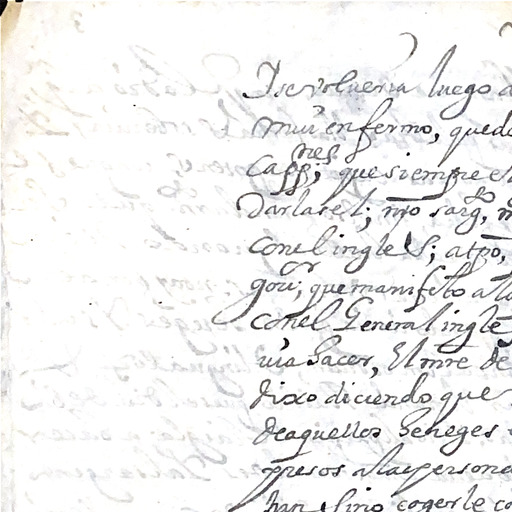 Y se volueria luego a
mui enfermo, quedo
capp.nes; que siempre el
darlas el; mro sarg.to, m
con el ingles; a tpo,
gou.or; que manifesto a la
con el General ingle
uia hacer, El mre de
dixo diciendo que
de aquellos hereges
presos a la persona
han sino cogerle co